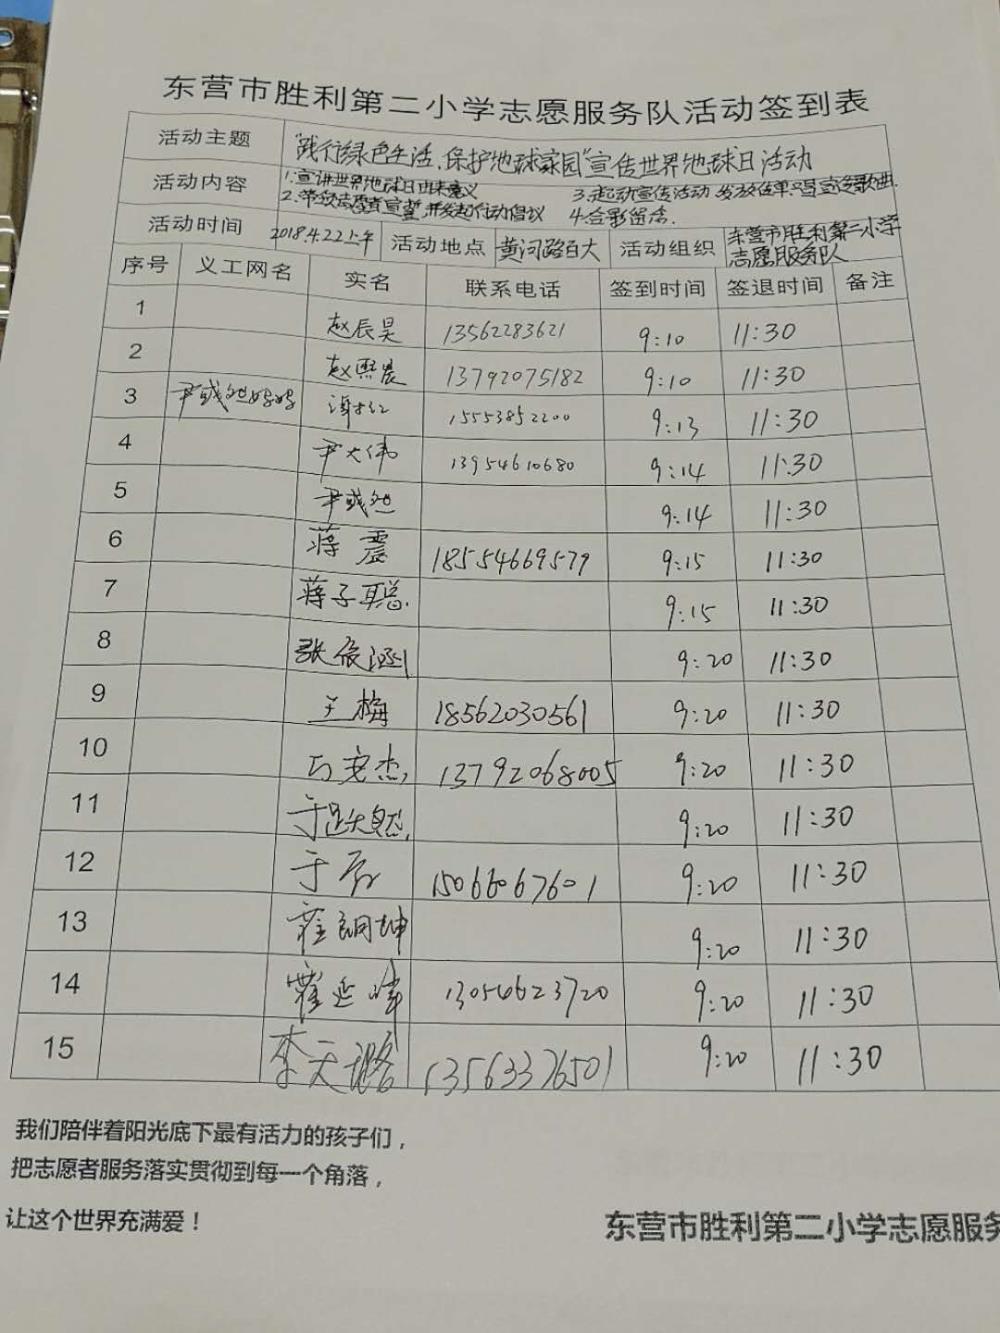 东营市胜利第二小学志愿服务队活动签到表
活动主题 "践行绿色生活、保护地球家园"宣传世界地球日活动
活动内容 1.宣讲世界地球日由来意义 3.起动宣传活动 发放传单
2.带领志愿者宣誓,并发起行动倡议 4.合影留念.
活动时间 2018.4.22上午 活动地点 黄河路百大 活动组织 东营市胜利第二小学志愿服务队
序号 义工网名 实名 联系电话 签到时间 签退时间 备注
1 赵辰昊 13562283621 9:10 11:30
2 赵熙晨 13792075182 9:10 11:30
3 15553852200 9:13 11:30
4 尹大伟 13954610680 9:14 11:30
5 9:14 11:30
6 蒋震 18554669579 9:15 11:30
7 蒋子聪 9:15 11:30
8 9:20 11:30
9 王梅 18562030561 9:20 11:30
10 13792068005 9:20 11:30
11 于跃然 9:20 11:30
12 15066067601 9:20 11:30
13 9:20 11:30
14 13054623720 9:20 11:30
15 李天璐 13563376501 9:20 11:30
我们陪伴着阳光底下最有活力的孩子们，
把志愿者服务落实贯彻到每一个角落，
让这个世界充满爱！
东营市胜利第二小学志愿服务